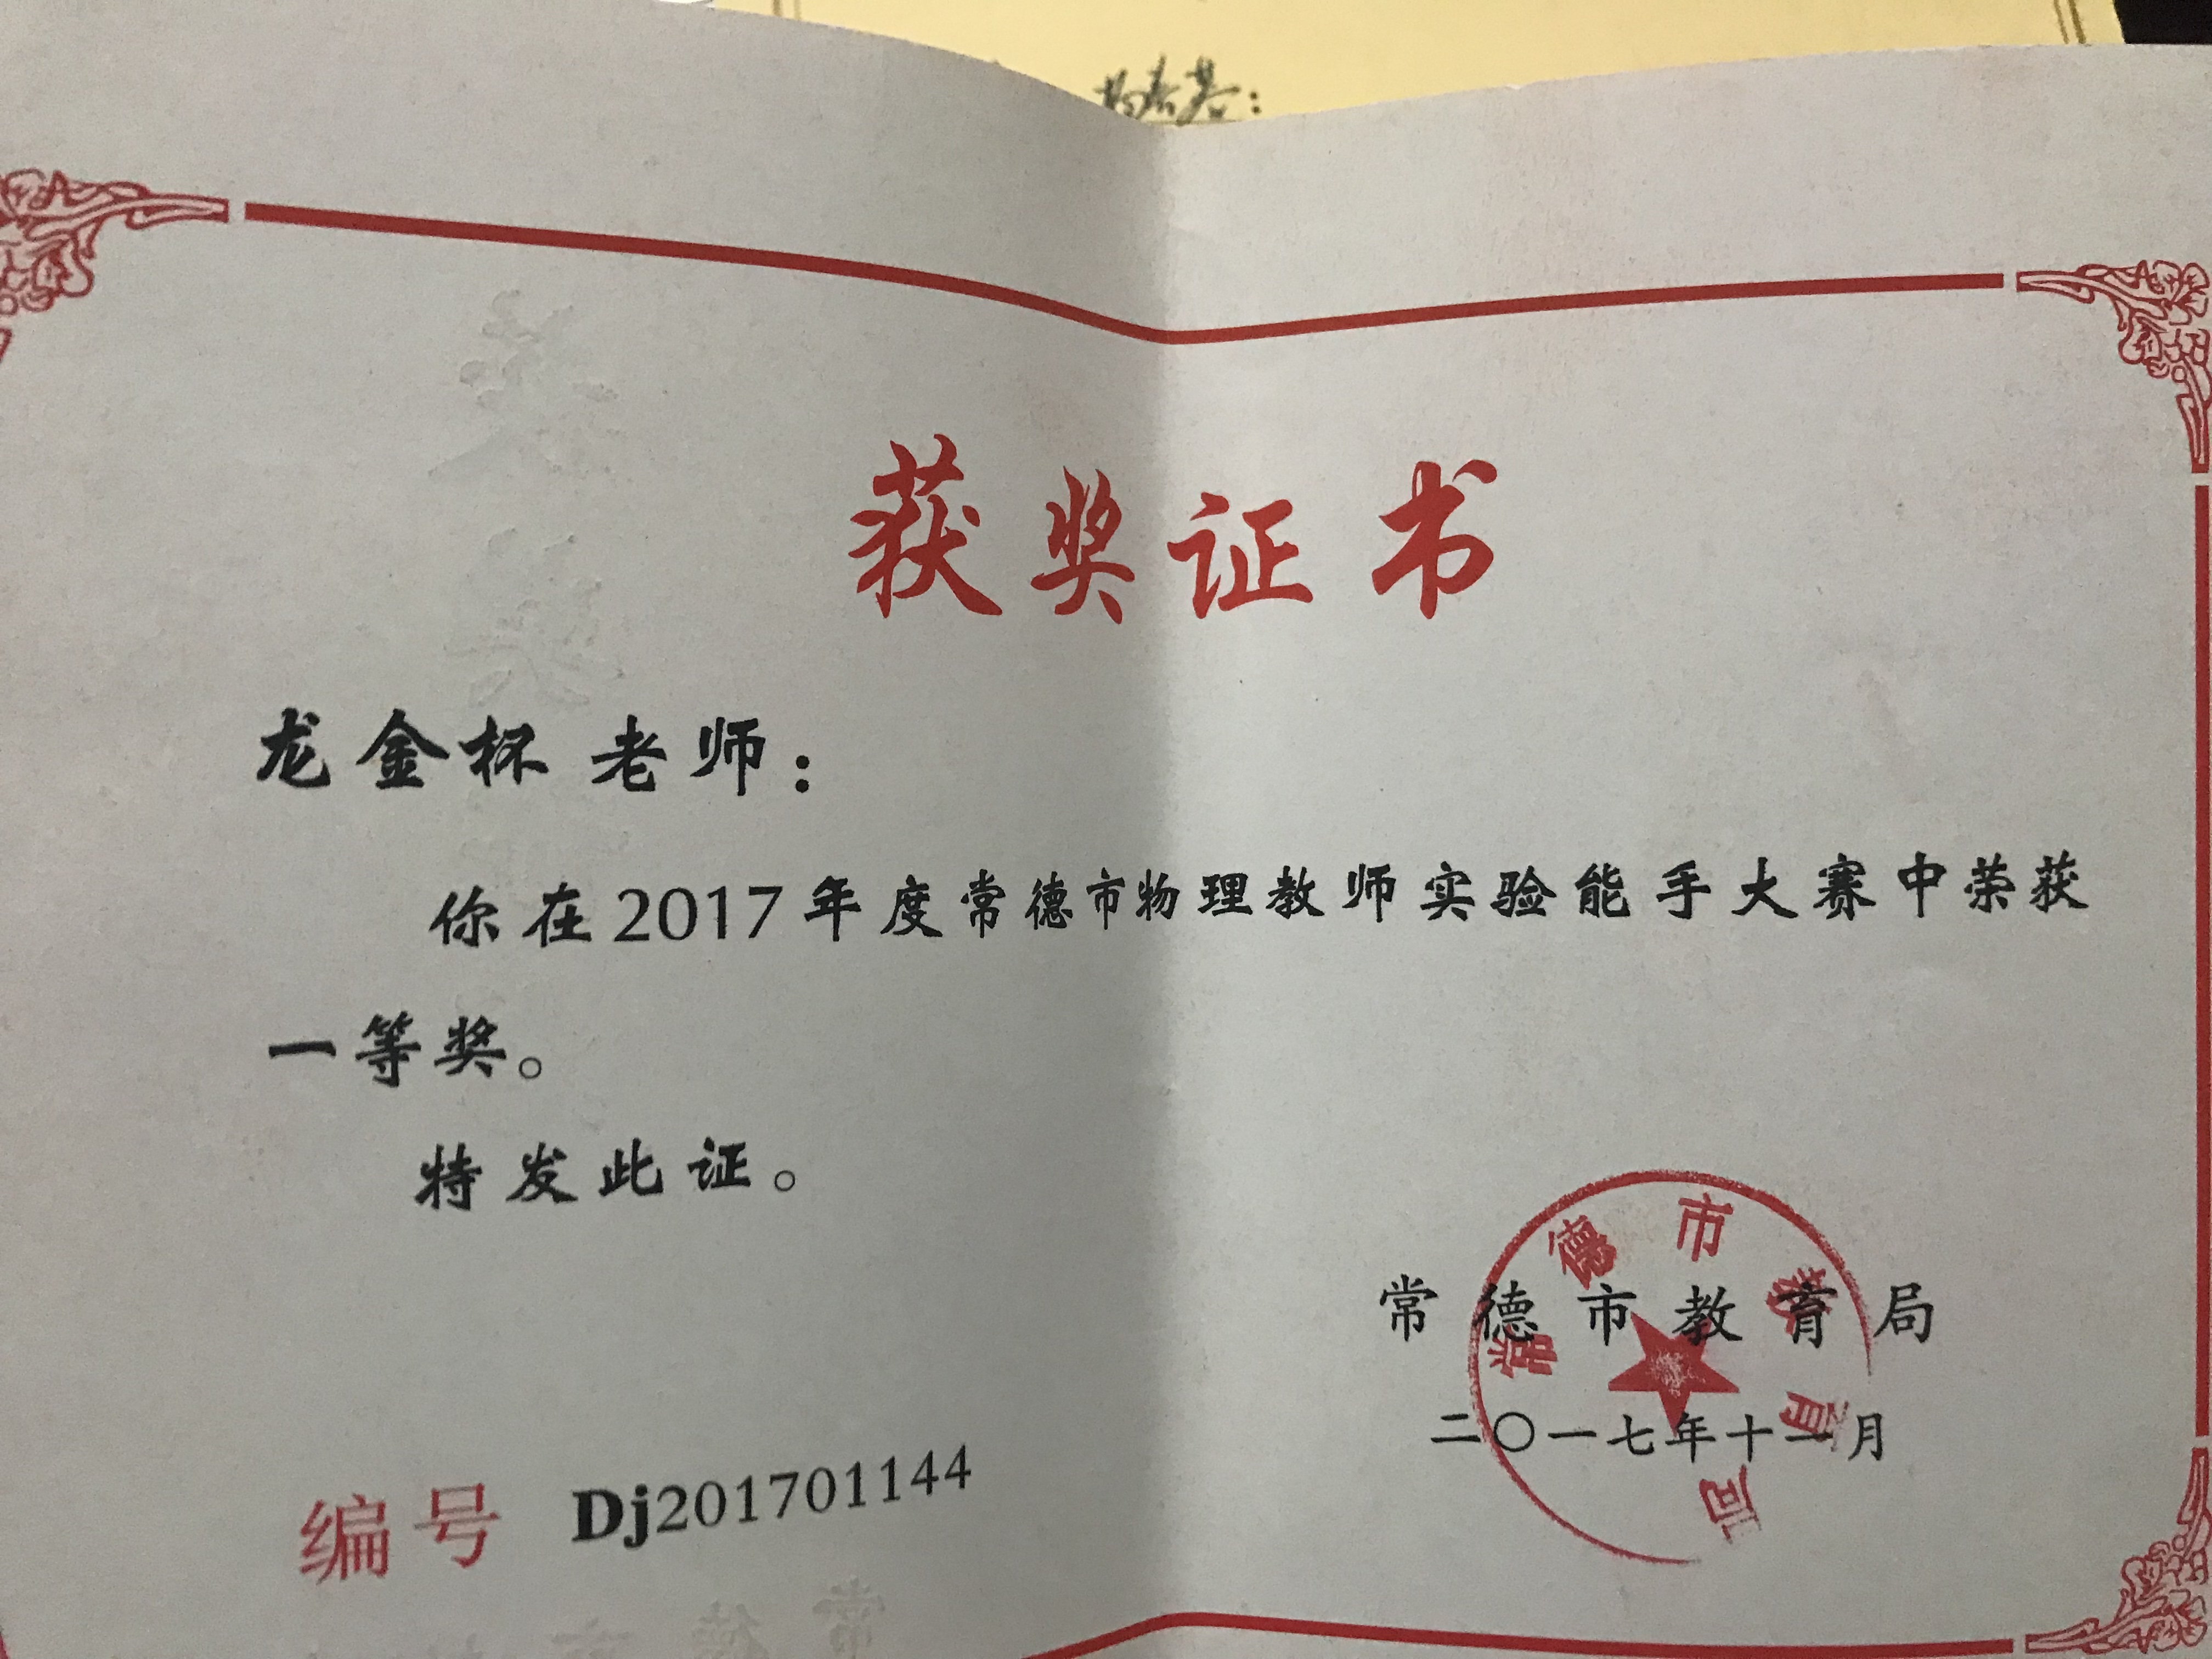 获奖证书
龙金杯 老师：
你在2017年度常德市物理教师实验能手大赛中荣获
一等奖。
特发此证。
常德市教育局
二〇一七年十一月
常德市教育局
编号 Dj201701144